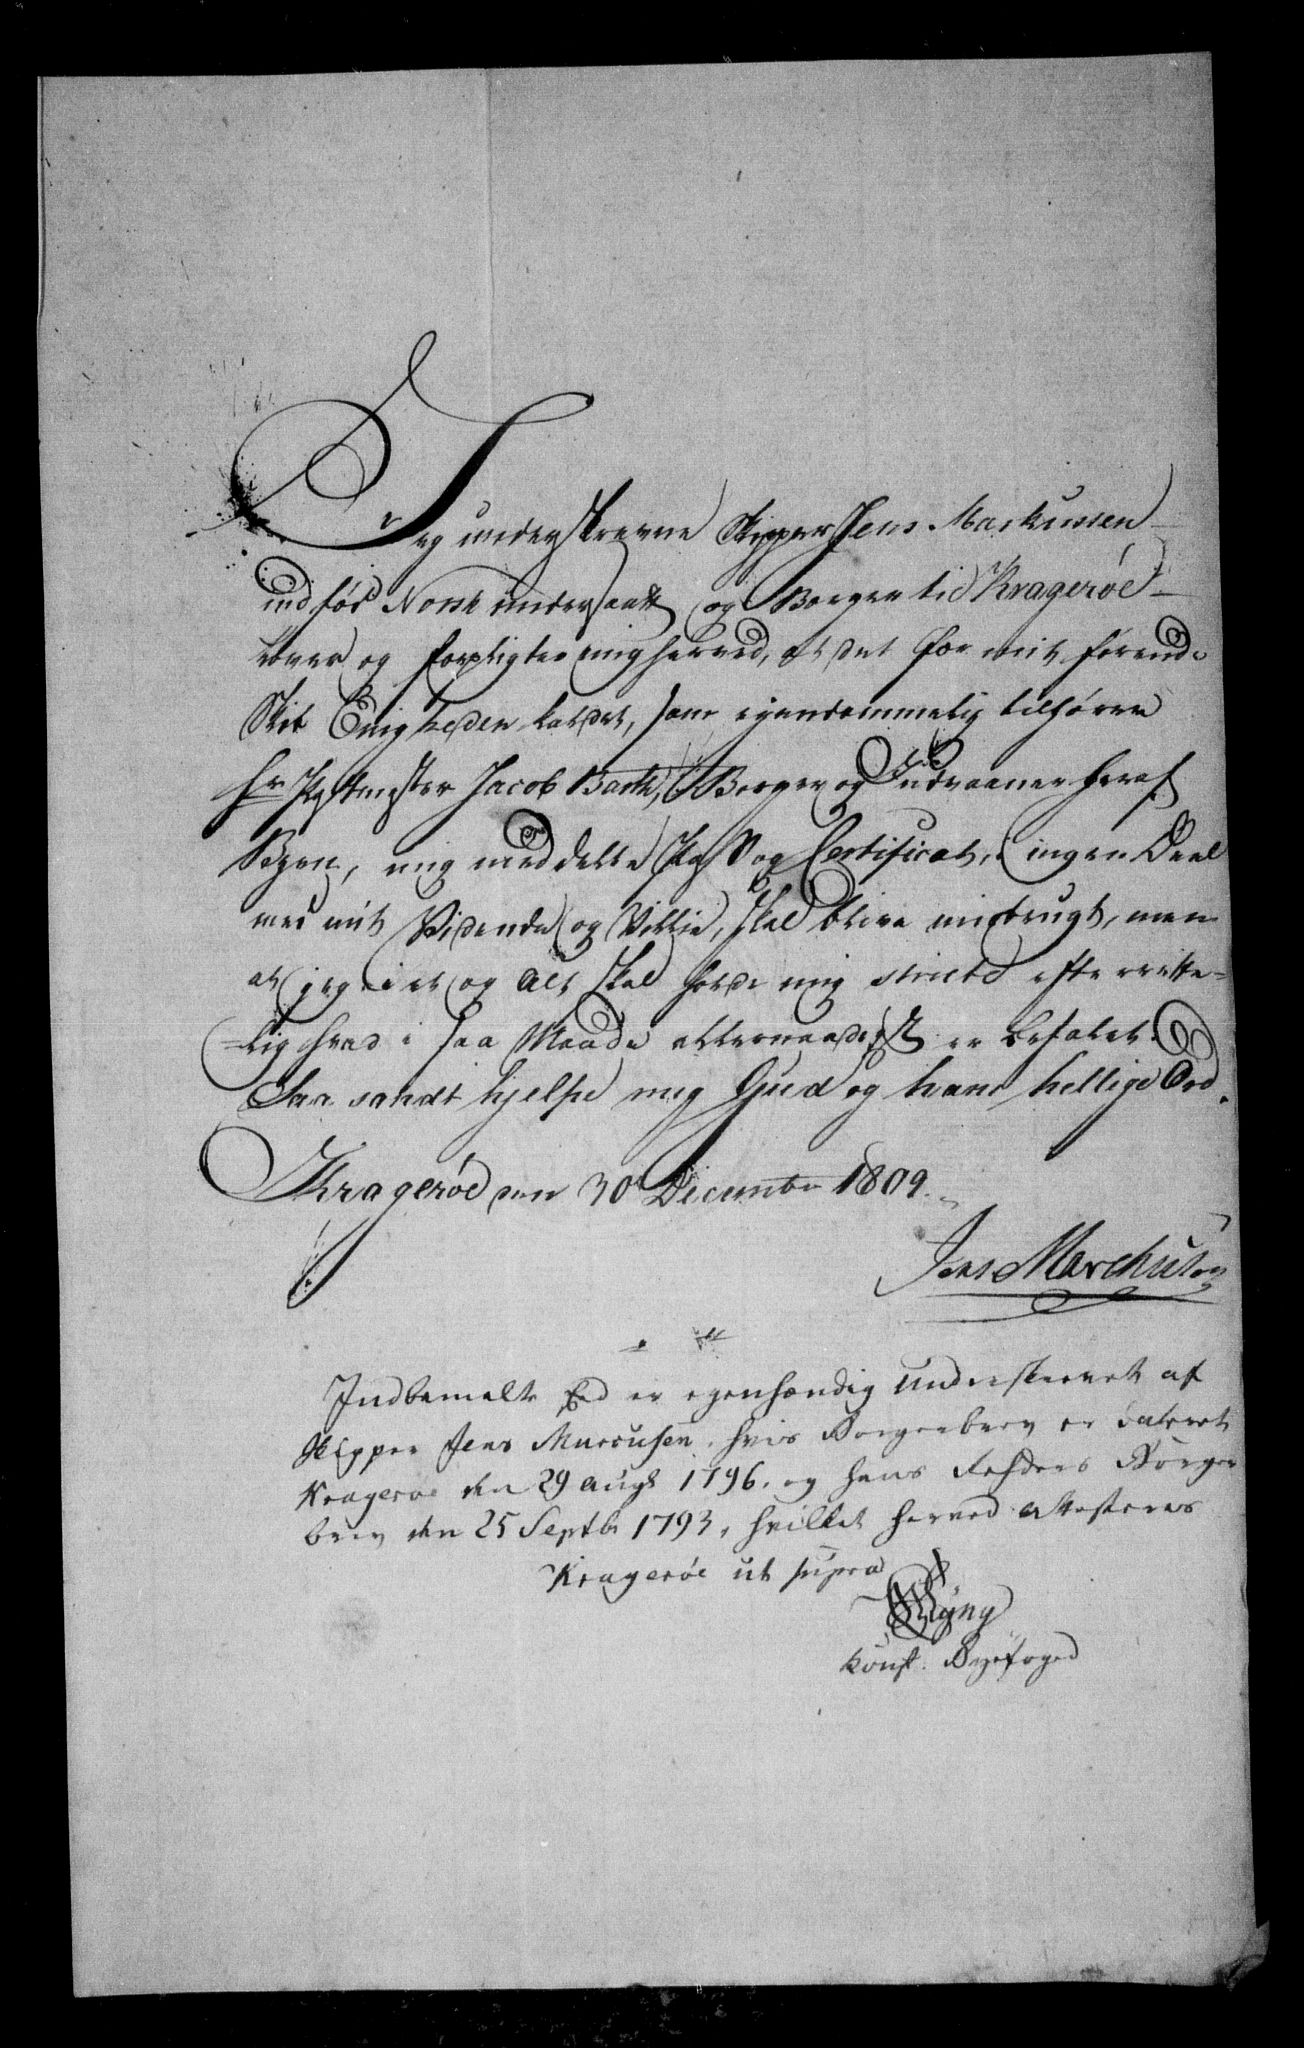 Jeg underskrevne Skipper Jens Markussen
indfød Norsk undersaatt og Borger til Kragerøe
lover og forpligter mig herved, at det for mit førende
Skib Enigheden kaldet, som egendommelig tilhører
Hr Postmester Jacob Barth, Borger og Indvaaner her af
Byen, mig meddelte Pas og Certificat, ingen Deel
med mit Vidende og Villie, skal blive misbrugt, men
at jeg i et og alt skal holde mig stricte efterrette-
=lig hvad i saa Maade allernaadigst er befalet.
Saa sandt hjelpe mig Gud og hans hellige Ord.
Kragerøe den 30 December 1809.
Jens Marchusen
Indbemelte Eed er egenhændig underskrevet af
Skipper Jens Marcusen, hvis Borgerbrev er dateret
Kragerøe den 29 augt 1796. og hans Rehders Borger
brev den 25 Septbr 1793, hvilket herved attesteres
Kragerøe ut supra
Const. Byefoged